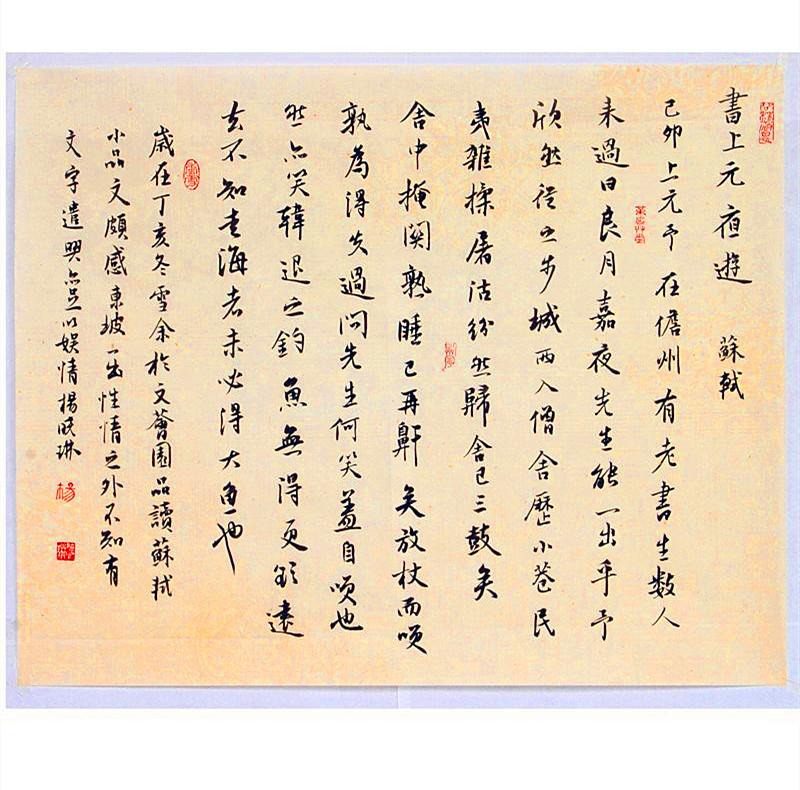 書上元夜遊　蘇軾
己卯上元予在儋州有老書生数人
来過曰良月嘉夜先生能一出乎予
欣然從之步城西入僧舍歷小巷民
夷雜揉屠沽紛然歸舍已三鼓矣
舍中掩関熟睡已再鼾矣放杖而哂
孰為得失過問先生何笑蓋自哂也
然亦笑韓退之釣魚無得更欲遠
去不知走海者未必得大魚也
歲在丁亥冬雪余於文薈園品讀蘇軾
小品文頗感東坡一出性情之外不知有
文字遣興亦足以娛情楊曉琳
楊